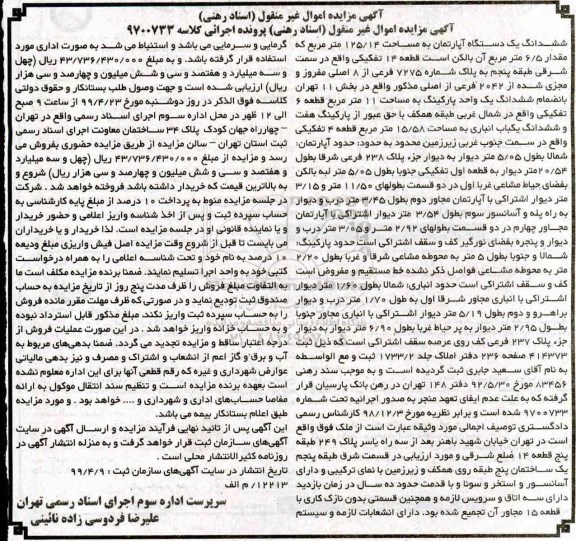 آگهی مزایده اموال غیر منقول (اسناد رهنی)
آگهی مزایده اموال غیر منقول (اسناد رهنی) پرونده اجرائی کلاسه ۹۷۰۰۷۳۳
ششدانگ یک دستگاه آپارتمان به مساحت ۱۲۵/۱۴ متر مربع که
مقدار ۶/۵ متر مربع آن بالکن است قطعه ۱۴ تفکیکی واقع در سمت
شرقی طبقه پنجم به پلاک شماره ۷۲۷۵ فرعی از ۸ اصلی مفروز و
مجزی شده از ۲۰۴۲ فرعی از اصلی مذکور واقع در بخش ۱۱ تهران
بانضمام ششدانگ یک واحد پارکینگ به مساحت ۱۱ متر مربع قطعه ۶
تفکیکی واقع در شمال غربی طبقه همکف با حق عبور از پارکینگ هفت
و ششدانگ یکباب انباری به مساحت ۱۵/۵۸ متر مربع قطعه ۴ تفکیکی
واقع در سمت جنوب غربی زیرزمین محدود به حدود: حدود آپارتمان:
شمالا بطول ۵/۰۵ متر دیوار به دیوار جزء پلاک ۲۳۸ فرعی شرقا بطول
۲۰/۵۴متر دیوار به قطعه اول تفکیکی جنوبا بطول ۵/۰۵ متر لبه بالکن
بفضای حیاط مشاعی غربا اول در دو قسمت بطولهای ۱۱/۵۰ متر و ۳/۱۵
متر دیوار اشتراکی با آپارتمان مجاور دوم بطول ۳/۴۵ متر درب و دیوار
به راه پله و آسانسور سوم بطول ۳/۵۴ متر دیوار اشتراکی با آپارتمان
مجاور چهارم در دو قسمت بطولهای ۲/۹۲ متر و ۳/۰۵ متر درب و
دیوار و پنجره بفضای نورگیر کف و سقف اشتراکی است حدود پارکینگ:
شمالا و جنوبا بطول ۵ متر به محوطه مشاعی شرقا و غربا بطول ۲/۲۰
متر به محوطه مشاعی فواصل ذکر نشده خط مستقیم و مفروض است
کف و سقف اشتراکی است حدود انباری: شمالا بطول ۱/۶۰ متر دیوار
اشتراکی با انباری مجاور شرقا اول به طول ۱/۷۰ متر درب و دیوار
براهرو و دوم بطول ۵/۱۹ متر دیوار اشتراکی با انباری مجاور جنوبا
بطول ۲/۹۵ متر دیوار به پر حیاط غربا بطول ۶/۹۰ متر دیوار به دیوار
جزء پلاک ۲۳۷ فرعی کف روی عرصه سقف اشتراکی است که ذیل ثبت
۴۱۴۳۷۳ صفحه ۲۳۶ دفتر املاک جلد ۱۷۳۳/۲ ثبت و مع الواسطه
به نام آقای سعید جابری ثبت گردیده است و به موجب سند رهنی
۸۳۴۵۶ مورخ ۹۲/۵/۳۰ دفتر ۱۴۸ تهران در رهن بانک پارسیان قرار
گرفته که به علت عدم ایفای تعهد منجر به صدور اجرائیه تحت شماره
۹۷۰۰۷۳۳ شده است و برابر نظریه مورخ ۹۸/۱۲/۳ کارشناس رسمی
دادگستری توصیف اجمالی مورد وثیقه عبارت است از ملک فوق واقع
است در تهران خیابان شهید باهنر بعد از سه راه یاسر پلاک ۲۴۹ طبقه
پنج قطعه ۱۴ ضلع شرقی و مورد ارزیابی در قسمت شرق طبقه پنجم
یک ساختمان پنج طبقه روی همکف و زیرزمین با نمای ترکیبی و دارای
آسانسور و استخر و سونا و با قدمت حدود ده سال در زمان بازدید
دارای سه اتاق و سرویس لازمه و همچنین قسمتی بدون نازک کاری با
قطعه ۱۵ مجاور آن تجمیع شده بود. دارای انشعابات لازمه و سیستم
گرمایی و سرمایی می باشد و استنباط می شد به صورت اداری مورد
استفاده قرار گرفته باشد. و به مبلغ ۴۳/۷۳۶/۴۳۰/۰۰۰ ریال (چهل
و سه میلیارد و هفتصد و سی و شش میلیون و چهارصد و سی هزار
ریال) ارزیابی شده است و جهت وصول طلب بستانکار و حقوق دولتی
کلاسه فوق الذکر در روز دوشنبه مورخ ۹۹/۴/۲۳ از ساعت ۹ صبح
الی ۱۲ ظهر در محل اداره سوم اجرای اسناد رسمی واقع در تهران
– چهارراه جهان کودک پلاک ۳۴ ساختمان معاونت اجرای اسناد رسمی
ثبت استان تهران – سالن مزایده از طریق مزایده حضوری بفروش می
رسد و مزایده از مبلغ ۴۳/۷۳۶/۴۳۰/۰۰۰ ریال (چهل و سه میلیارد
و هفتصد و سی و شش میلیون و چهارصد و سی هزار ریال) شروع و
به بالاترین قیمت که خریدار داشته باشد فروخته خواهد شد . شرکت
در جلسه مزایده منوط به پرداخت ۱۰ درصد از مبلغ پایه کارشناسی به
حساب سپرده ثبت و پس از اخذ شناسه واریز اعلامی و حضور خریدار
و یا نماینده قانونی او در جلسه مزایده است. لذا خریدار و یا خریداران
می بایست تا قبل از شروع وقت مزایده اصل فیش واریزی مبلغ ودیعه
۱۰ درصد به نام خود و تحت شناسه اعلامی را به همراه درخواست
کتبی خود به واحد اجرا تسلیم نمایند. ضمنا برنده مزایده مکلف است ما
به التفاوت مبلغ فروش را ظرف مدت پنج روز از تاریخ مزایده به حساب
صندوق ثبت تودیع نماید و در صورتی که ظرف مهلت مقرر مانده فروش
را به حساب سپرده ثبت واریز نکند، مبلغ مذکور قابل استرداد نبوده
و به حساب خزانه واریز خواهد شد . در این صورت عملیات فروش از
درجه اعتبار ساقط و مزایده تجدید می گردد. ضمنا بدهی‌های مربوط به
آب و برق و گاز اعم از انشعاب و اشتراک و مصرف و نیز بدهی مالیاتی
عوارض شهرداری و غیره که رقم قطعی آنها برای این اداره معلوم نشده
است بعهده برنده مزایده است و تنظیم سند انتقال موکول به ارائه
مفاصا حساب‌های اداری و شهرداری و .... خواهد بود . و مورد مزایده
طبق اعلام بستانکار بیمه می باشد.
این آگهی پس از تائید نهایی فرآیند مزایده و ارسال آگهی در سایت
آگهی‌های سازمان ثبت قرار خواهد گرفت و به منزله انتشار آگهی در
روزنامه کثیرالانتشار محلی است .
تاریخ انتشار در سایت آگهی‌های سازمان ثبت : ۹۹/۴/۹
۱۲۲۱۳/ م الف
سرپرست اداره سوم اجرای اسناد رسمی تهران
علیرضا فردوسی زاده نائینی